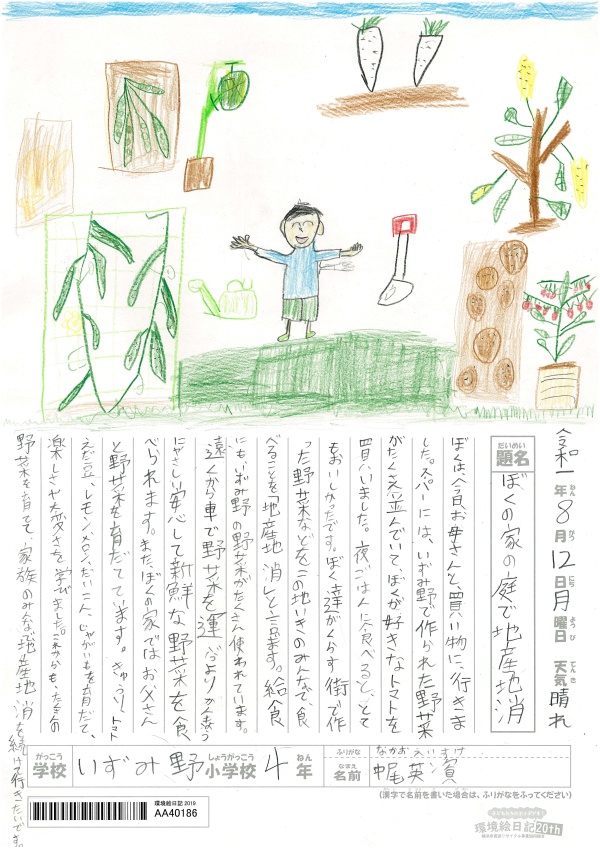 令和一年8月12日月曜日 天気 晴れ
だいめい
題名
ぼくの家の庭で地産地消
ぼくは、今日、お母さんと、買い物に、行きま
した。スーパーには、いずみ野で作られた野菜
がたくさん並んでいて、ぼくが好きなトマトを
買いました。夜ごはんに食べると、とて
もおいしかったです。ぼく達がくらす街で作
った野菜などをこの地いきのみんなで、食
べることを「地産地消」と言います。給食
にも、いずみ野の野菜がたくさん使われています。
遠くから車で野菜を運ぶより
にやさしい安心して新鮮な野菜を食
べられます。また、ぼくの家ではお父さん
と野菜を育だてています。きゅうり、トマト
えだ豆、レモン、メロン、だいこん、じゃがいもを育だて、
楽しさや大変さを学びました。これからも、たくさんの
野菜を育てて、家族のみんなで地産地消を続けて行きたいです。
がっこう しょうがっこう ねん
学校 いずみ野 小学校 4年
ふりがな なかお えいすけ
なまえ
名前
(漢字で名前を書いた場合は、ふりがなをふってください)
環境絵日記 2019
AA40186
環境絵日記20th